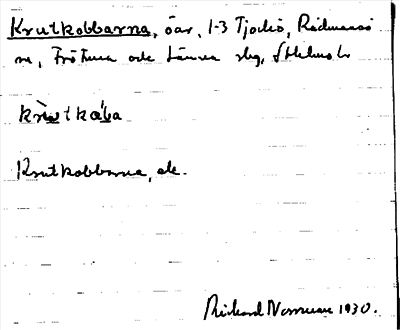 Krutkobbarna, öar, 1-3 Tjockö, Rådmansö
sn, Frötuna och Länna slg, Sthlms l.
Krutkobbarna, ek.
Rickard Norrman 1930.